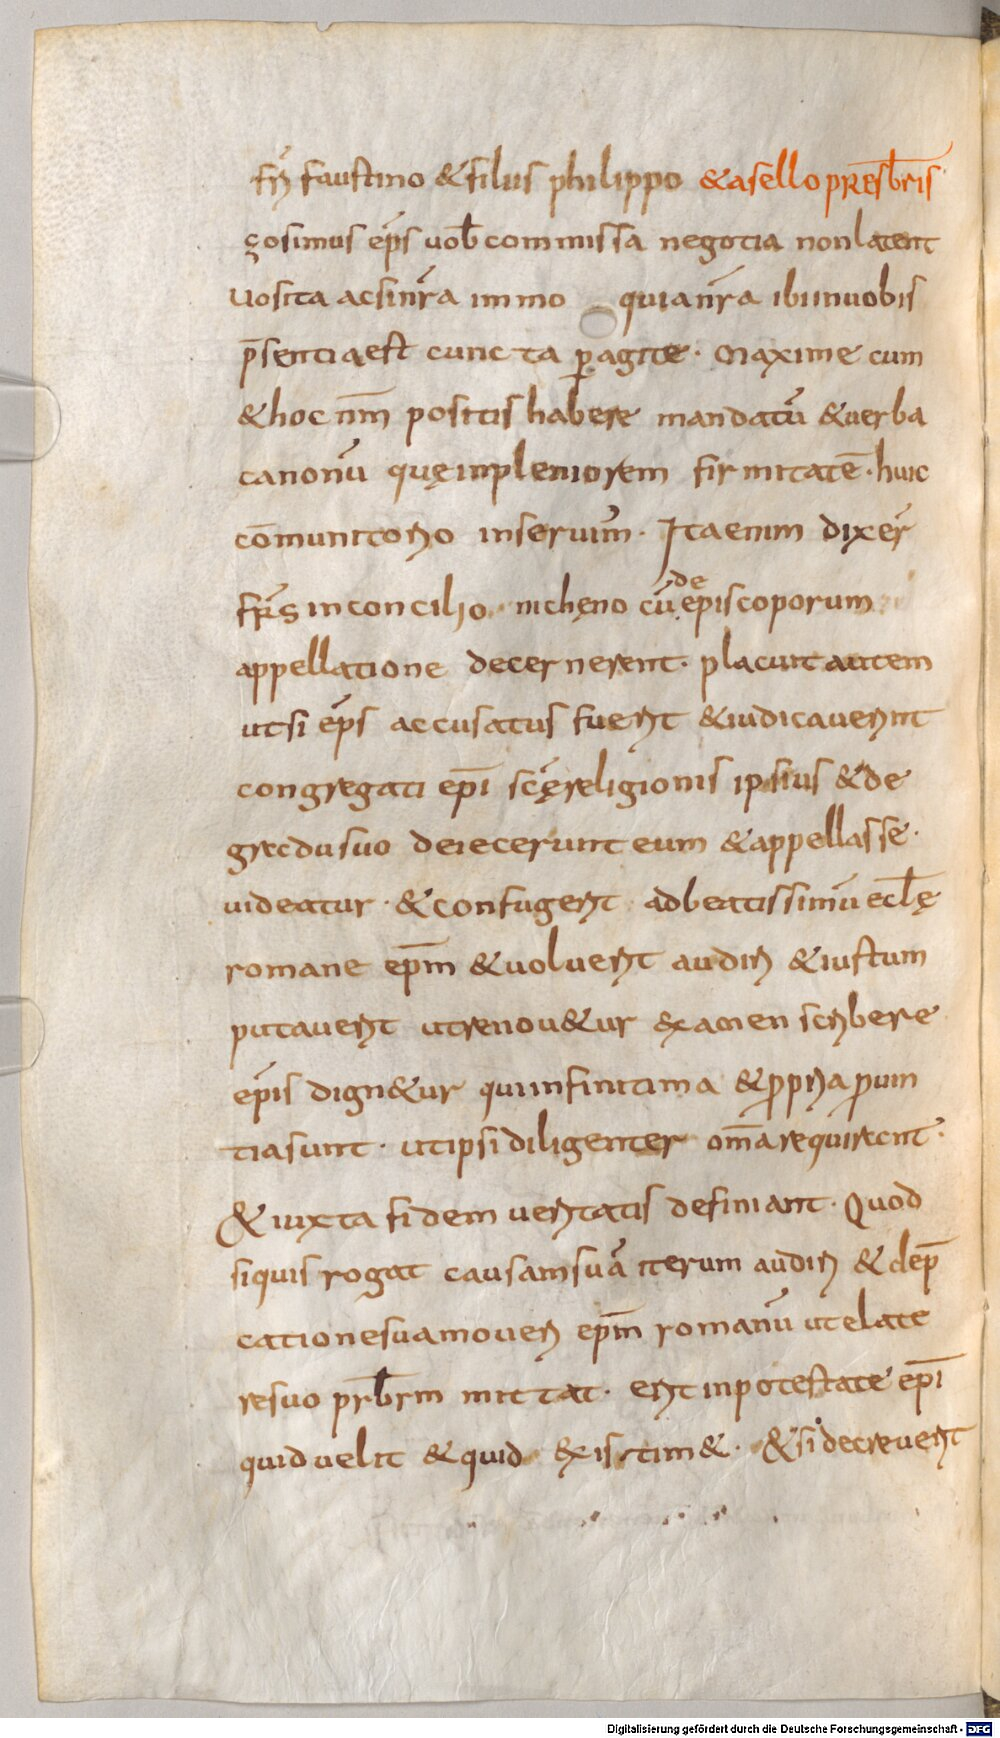 fr̄i faustino & filiis philippo & asello presb̄ris
zosimus ep̄s uob̄ commissa negotia non latent
uos ita ac si nr̄a immo quia nr̄a ibi in uobis
p̄sentia est cuncta ꝑagite. Maxime cum
& hoc nr̄m positis habere mandatū & uerba
canonū quę in pleniorem firmitatē. huic
cōmunitorio inseruim̄. Ita enim dixer̄
fr̄s in concilio nichęno cū de episcoporum
appellatione decernerent. placuit autem
ut si ep̄s accusatus fuerit & iudicauerint
congregati ep̄i scę̄ religionis ipsius & de
gradu suo deiecerunt eum & appellasse.
uideatur. & confugerit ad beatissimū ecl̄ę
romane ep̄m & uoluerit audiri & iustum
putauerit ut renou&ur examen scribere
ep̄is dign&ur qui in finitima & ꝓpria ꝓuin
tia sunt. ut ipsi diligenter om̄a requirent.
& iuxta fidem ueritatis definiant. Quod
si quis rogat causam suā iterum audiri & dep̄
catione sua moueri ep̄m romanū ut e latere
resuo prb̄rm mittat. erit in potestate ep̄i
quid uelit & quid existim&. & si decreuerit
Digitalisierung gefördert durch die Deutsche Forschungsgemeinschaft - DFG